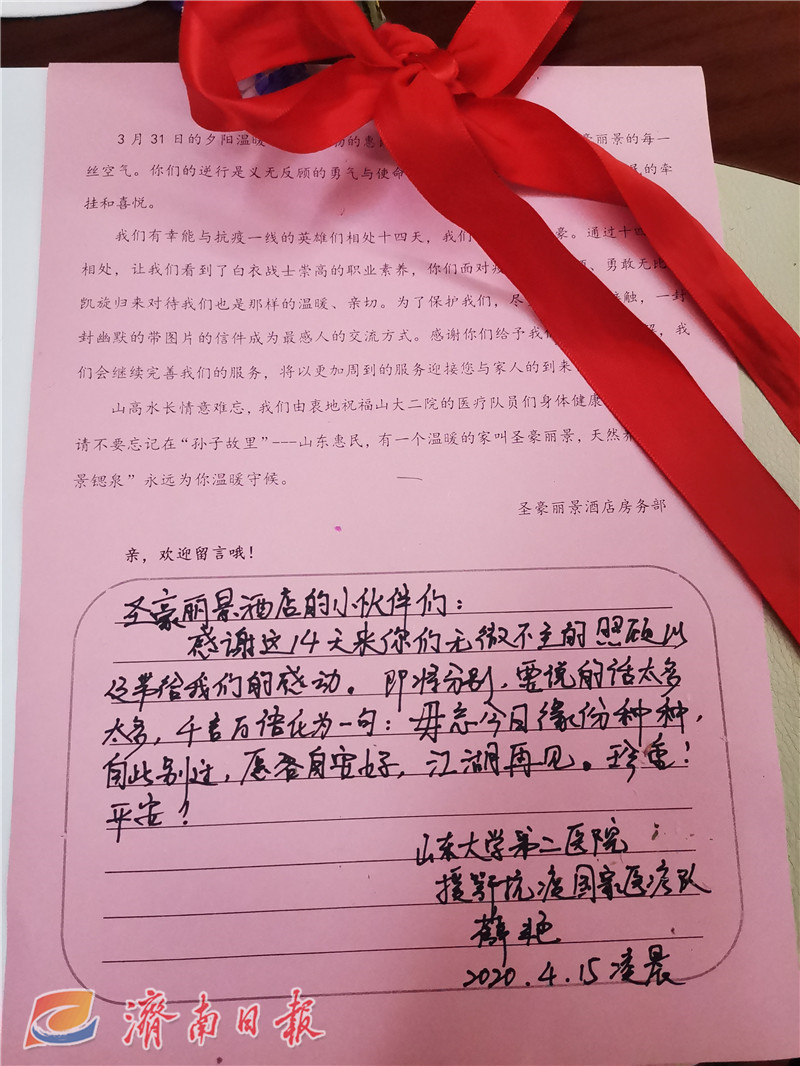 3月31日的夕阳温暖 的惠 豪丽景的每一
丝空气。你们的逆行是义无反顾的勇气与使命 的牵
挂和喜悦。
我们有幸能与抗疫一线的英雄们相处十四天，我们 豪。通过十四
相处，让我们看到了白衣战士崇高的职业素养，你们面对 、勇敢无比
凯旋归来对待我们也是那样的温暖、亲切。为了保护我们，尽 接触，一封
封幽默的带图片的信件成为最感人的交流方式。感谢你们给予我 ，我
们会继续完善我们的服务，将以更加周到的服务迎接您与家人的到来
山高水长情意难忘，我们由衷地祝福山大二院的医疗队员们身体健康
请不要忘记在“孙子故里”---山东惠民，有一个温暖的家叫圣豪丽景，天然
景锶泉”永远为你温暖守候。
圣豪丽景酒店房务部
亲，欢迎留言哦！
圣豪丽景酒店的小伙伴们：
感谢这14天来你们无微不至的照顾以
及带给我们的感动。即将分别，要说的话太多
太多，千言万语化为一句：毋忘今日缘份种种，
自此别过，愿各自安好，江湖再见。珍重！
平安！
山东大学第二医院
援鄂抗疫国家医疗队
薛艳
2020.4.15凌晨
濟南日報